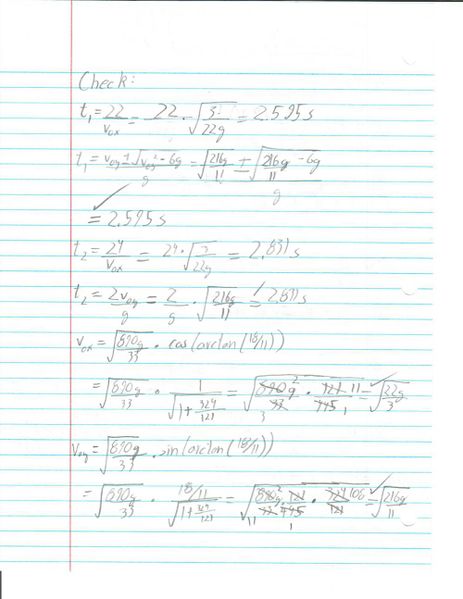 Check:
t₁ = 22/v₀ₓ = 22 · √(3/22g) = 2.595 s
t₁ = (v₀y ± √(v₀y² - 6g))/g = (√(216g/11) ± √(216g/11 - 6g))/g
= 2.595 s ✓
t₂ = 24/v₀ₓ = 24 · √(3/22g) = 2.831 s
t₂ = 2v₀y/g = 2/g · √(216g/11) = 2.831 s ✓
v₀ₓ = √(890g/33) · cos(arctan(18/11))
= √(890g/33) · 1/√(1+324/121) = √(890g/33 · 121/445) = √(22g/3) ✓
v₀y = √(890g/33) · sin(arctan(18/11))
= √(890g/33) · (18/11)/√(1+324/121) = √(890g/33 · 121/445 · 324/121) = √(216g/11) ✓